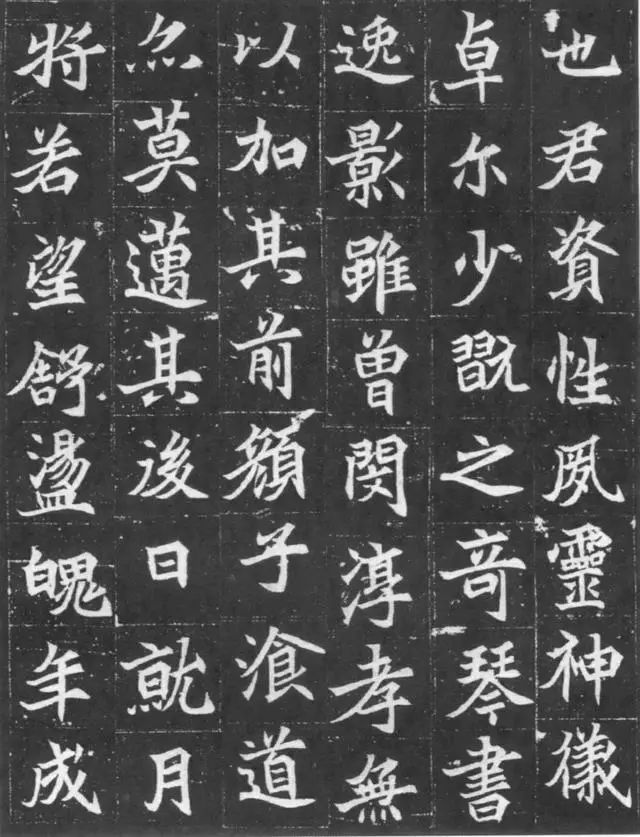 也君資性夙靈神儀
卓尔少戬之竒琴書
逸影雖曾閔淳孝無
以加其前顏子飡道
尒莫邁其後日就月
將若望舒盪魄年成